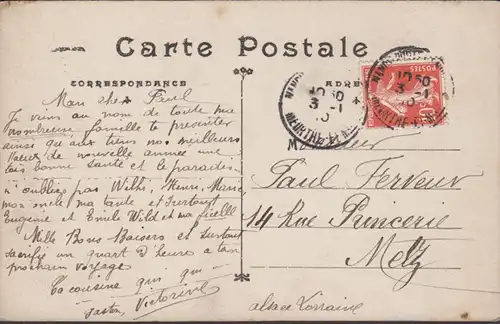 Carte Postale
CORRESPONDANCE
ADRE
Mon cher Paul
Je viens au nom de toute ma
nombreuse famille te présenter
ainsi qu'aux tiens nos meilleurs
vœux de nouvelle année une
très bonne santé et le paradis
n'oubliez pas Willi, Henri, Marie
mon oncle ma tante et surtout
Eugénie et Emile Wild et ma
Mille Bons Baisers et surtout
sacrifie un quart d'heure a ton
prochain voyage
Ta cousine qui
Victorine
10 50
3 -1
10
MEURTHE-ET-M
10 50
3 -1
10
MEURTHE-ET-M
POSTES
Monsieur
Paul Ferveur
14 Rue Princerie
Metz
alsace Lorraine